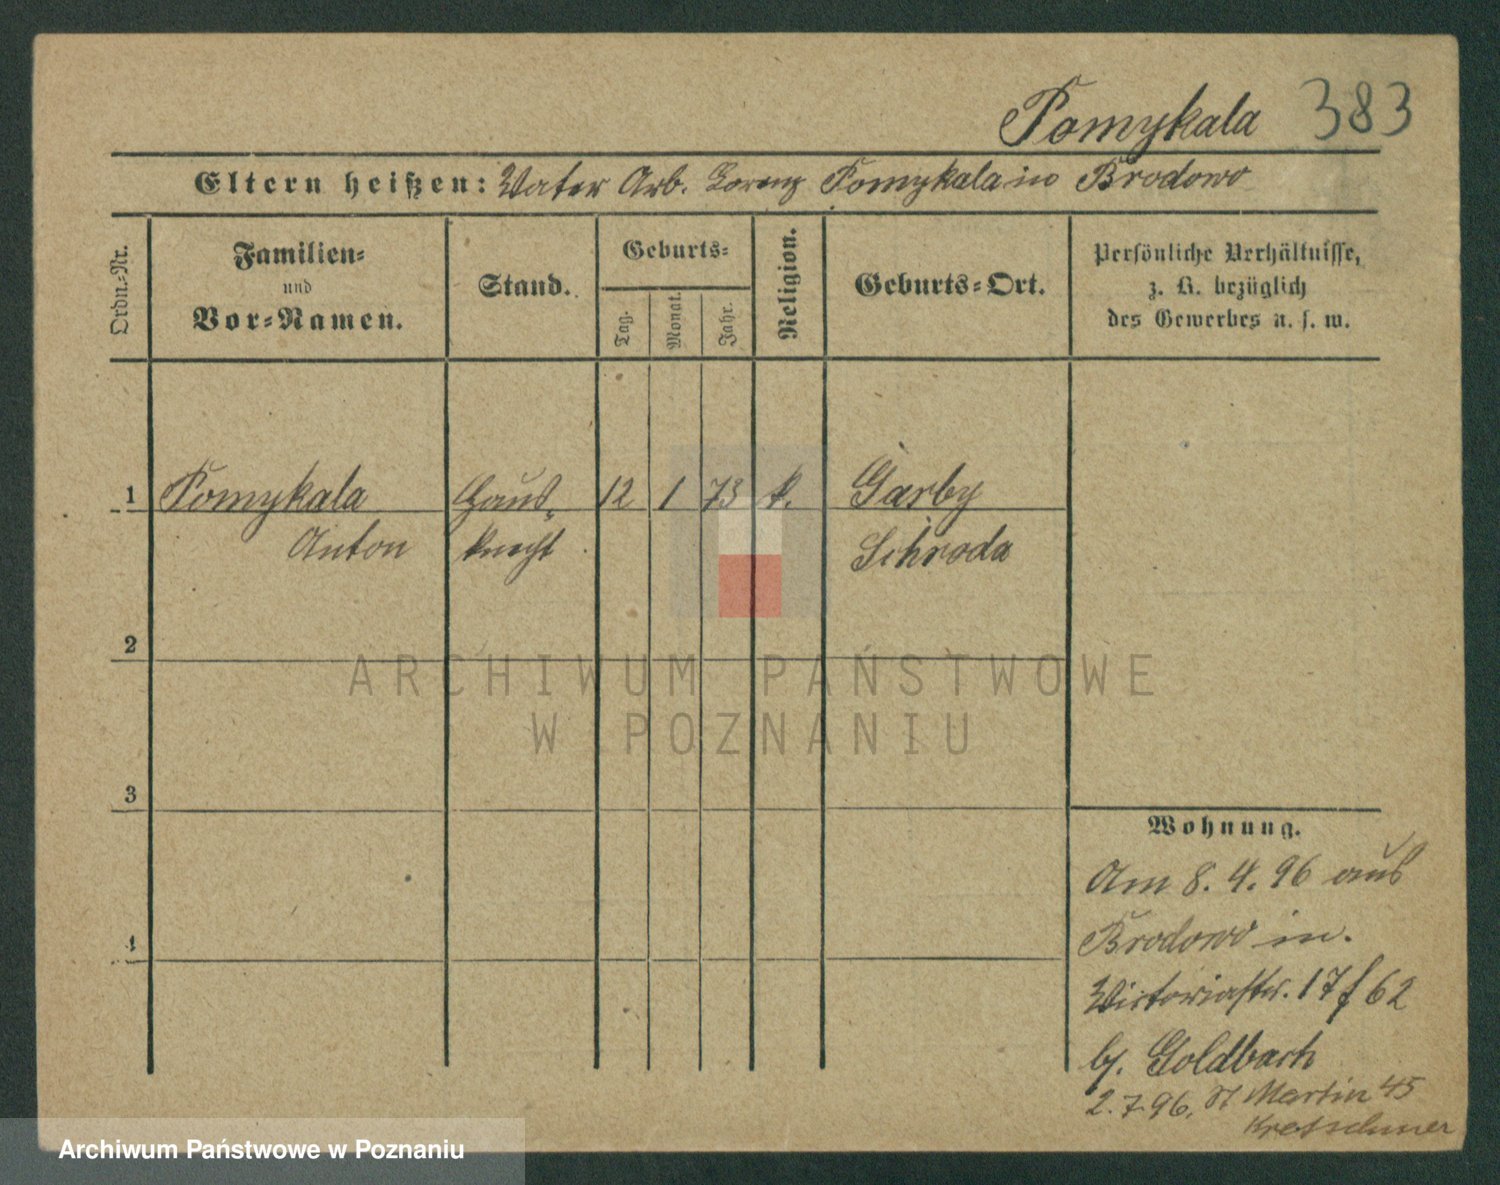 Pomykala 383
Eltern heißen: Vater Arb. Lorenz Pomykala in Brodowo
Ordn.-Nr.
Familien-
und
Vor-Namen.
Stand.
Geburts-
Tag.
Monat.
Jahr.
Religion.
Geburts-Ort.
Persönliche Verhältnisse,
z. B. bezüglich
des Gewerbes u. s. w.
1 Pomykala Haus- 12 1 73 k. Garby
Anton knecht Schroda
2
3
4
Wohnung.
Am 8. 4. 96 aus
Brodowo in.
Victoriastr. 17 f 62
b/. Goldbach
2.7.96. St Martin 45
Kretschmer
ARCHIWUM PAŃSTWOWE
W POZNANIU
Archiwum Państwowe w Poznaniu